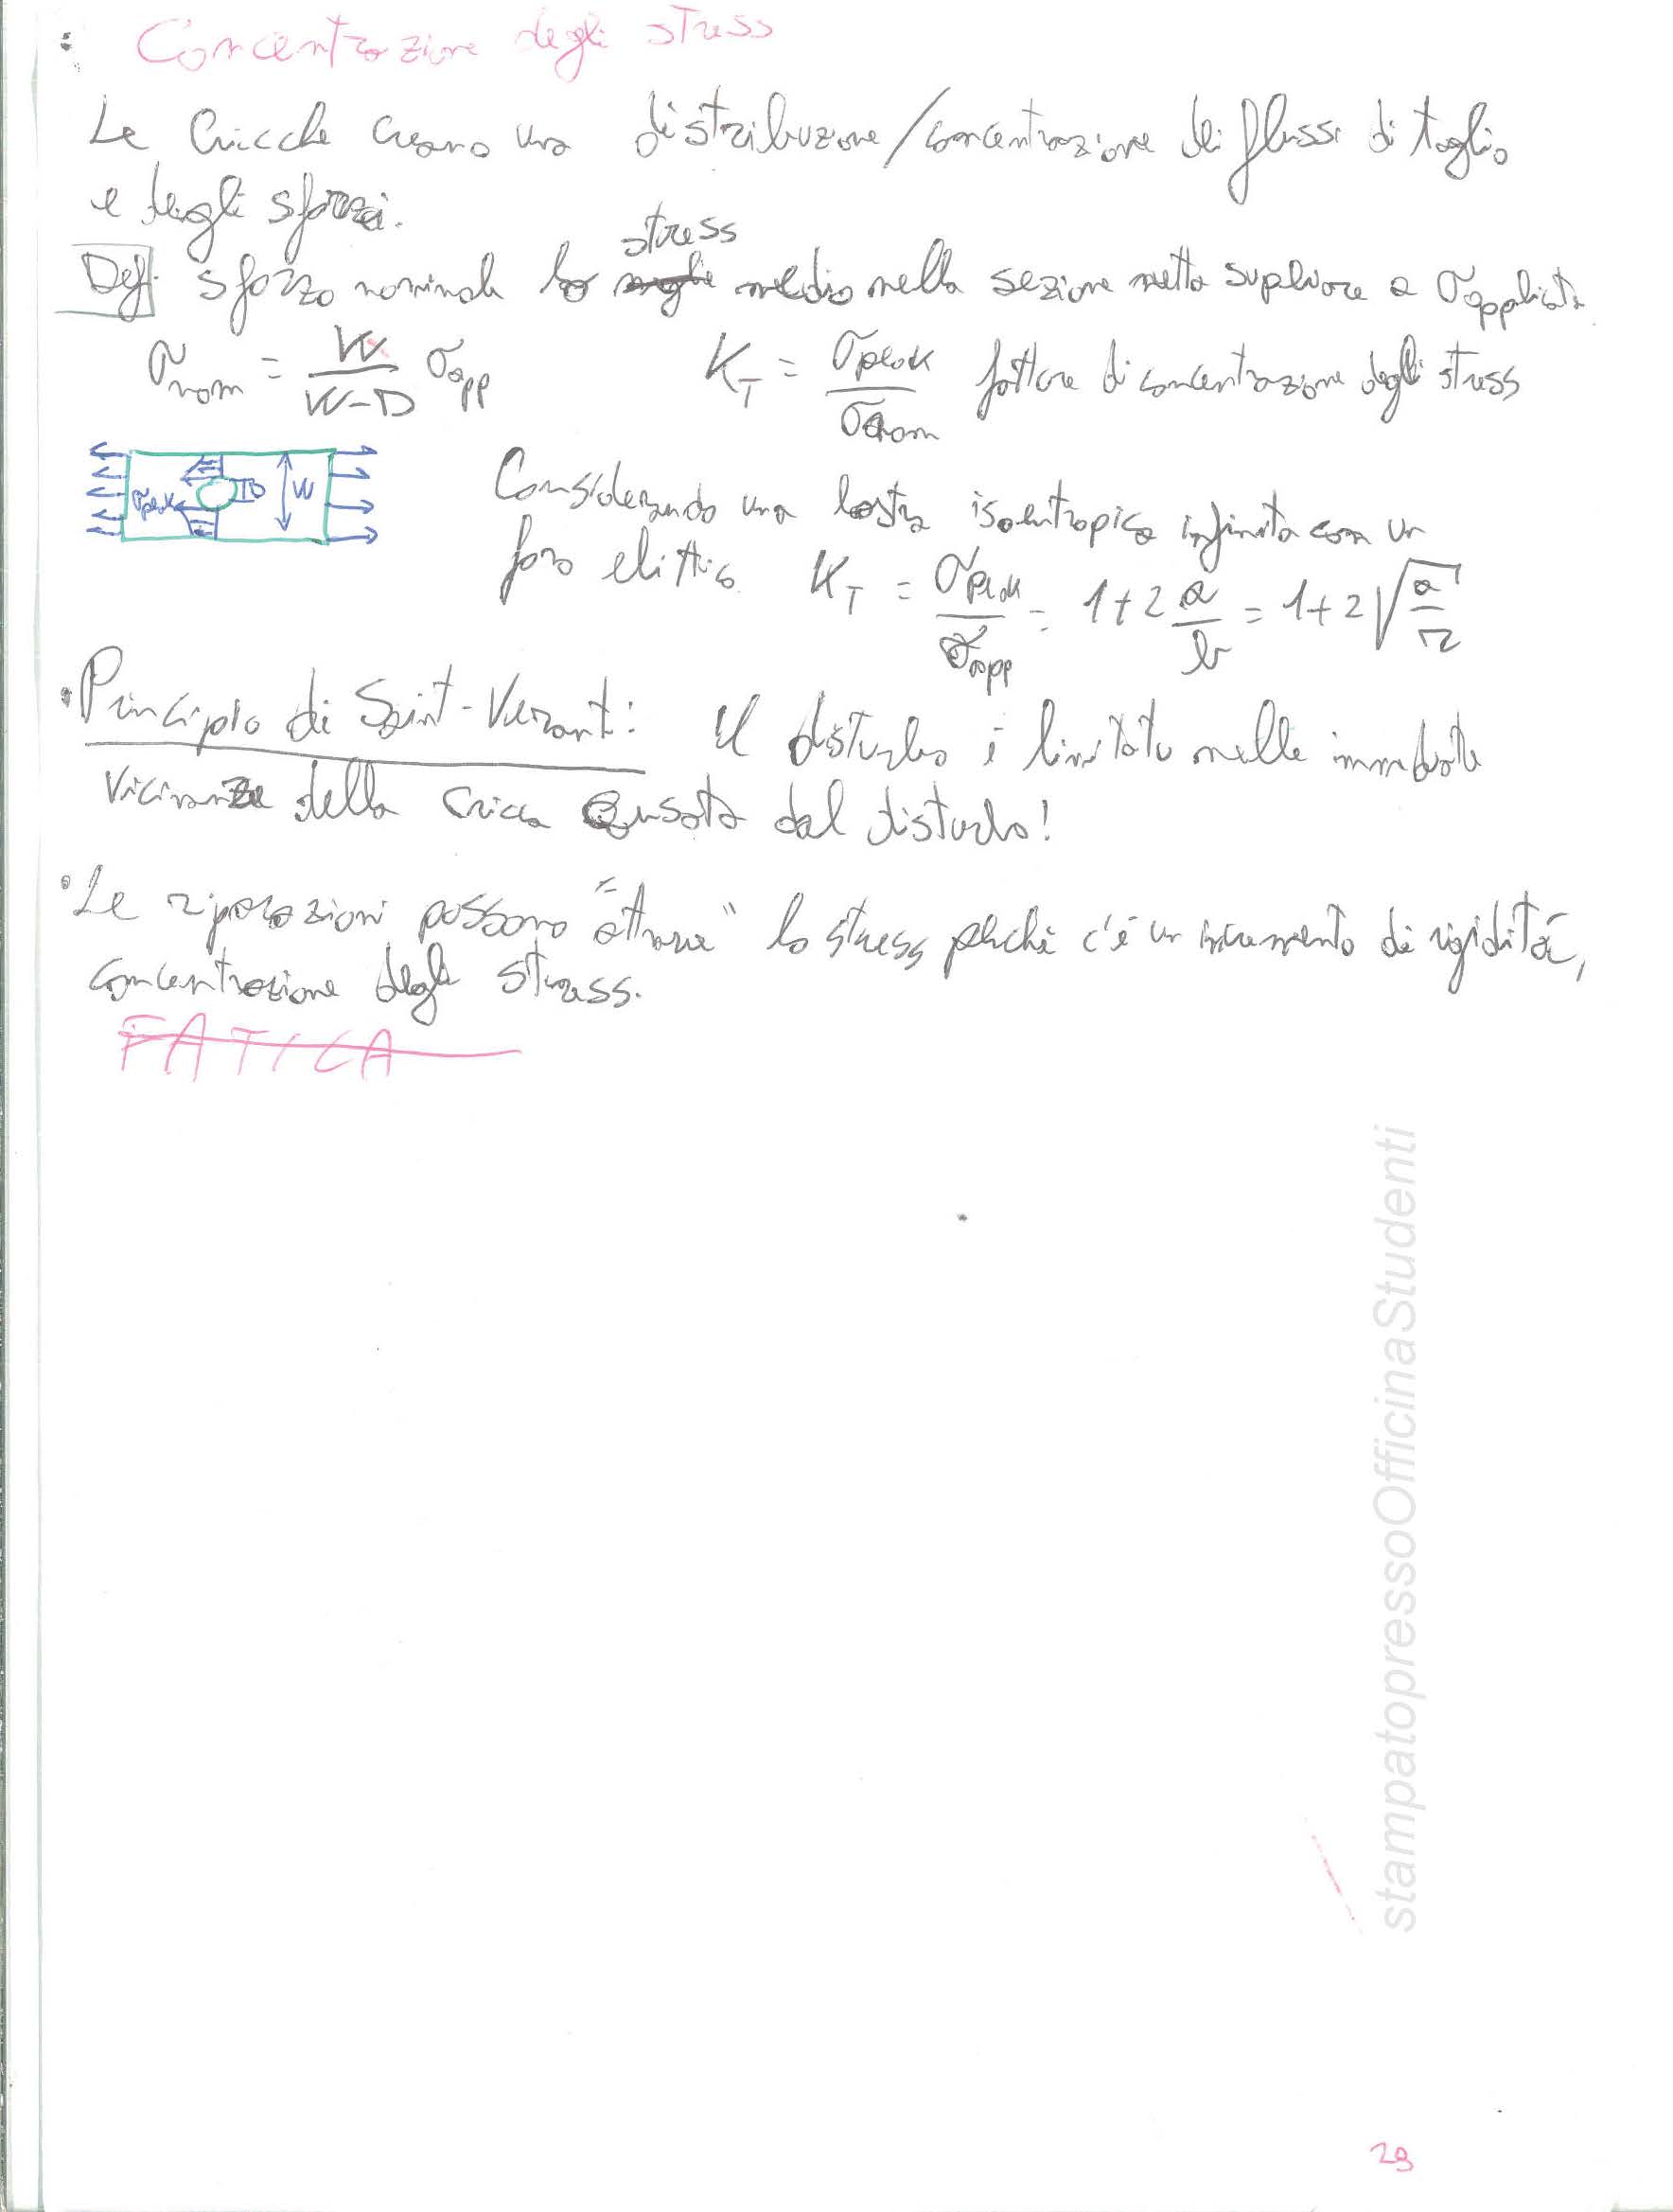 Concentrazione degli stress
Le Cricche creano una distribuzione/concentrazione dei flussi di taglio
e degli sforzi.
stress
Def: sforzo nominale lo medio nella sezione netta superiore a σapplicata
σnom = W/(W-D) σapp    KT = σpeak/σnom fattore di concentrazione degli stress
σpeak D W
Considerando una lastra isoentropica infinita con un
foro elittico. KT = σpeak/σapp = 1+2 a/b = 1+2√(a/r)
• Principio di Saint-Venant: Il disturbo è limitato nelle immediate
vicinanze della cricca causata dal disturbo!
• Le riparazioni possono "attrarre" lo stress perché c'é un incremento di rigiditá,
concentrazione degli stress.
FATICA
stampatopressoOfficinaStudenti
29